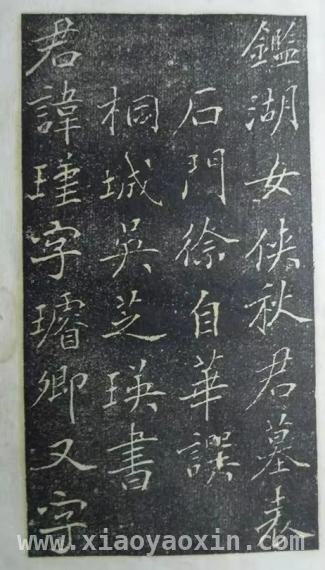 鑑湖女俠秋君墓表
石門徐自華譔
桐城吳芝瑛書
君諱瑾字璿卿又字
www.xiaoyaoxin.com